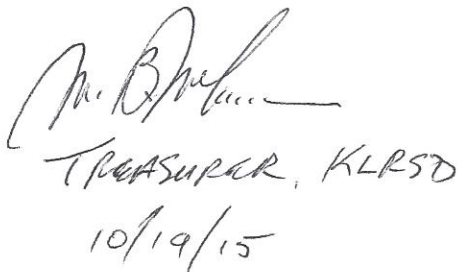 TREASURER, KLRSD
10/19/15